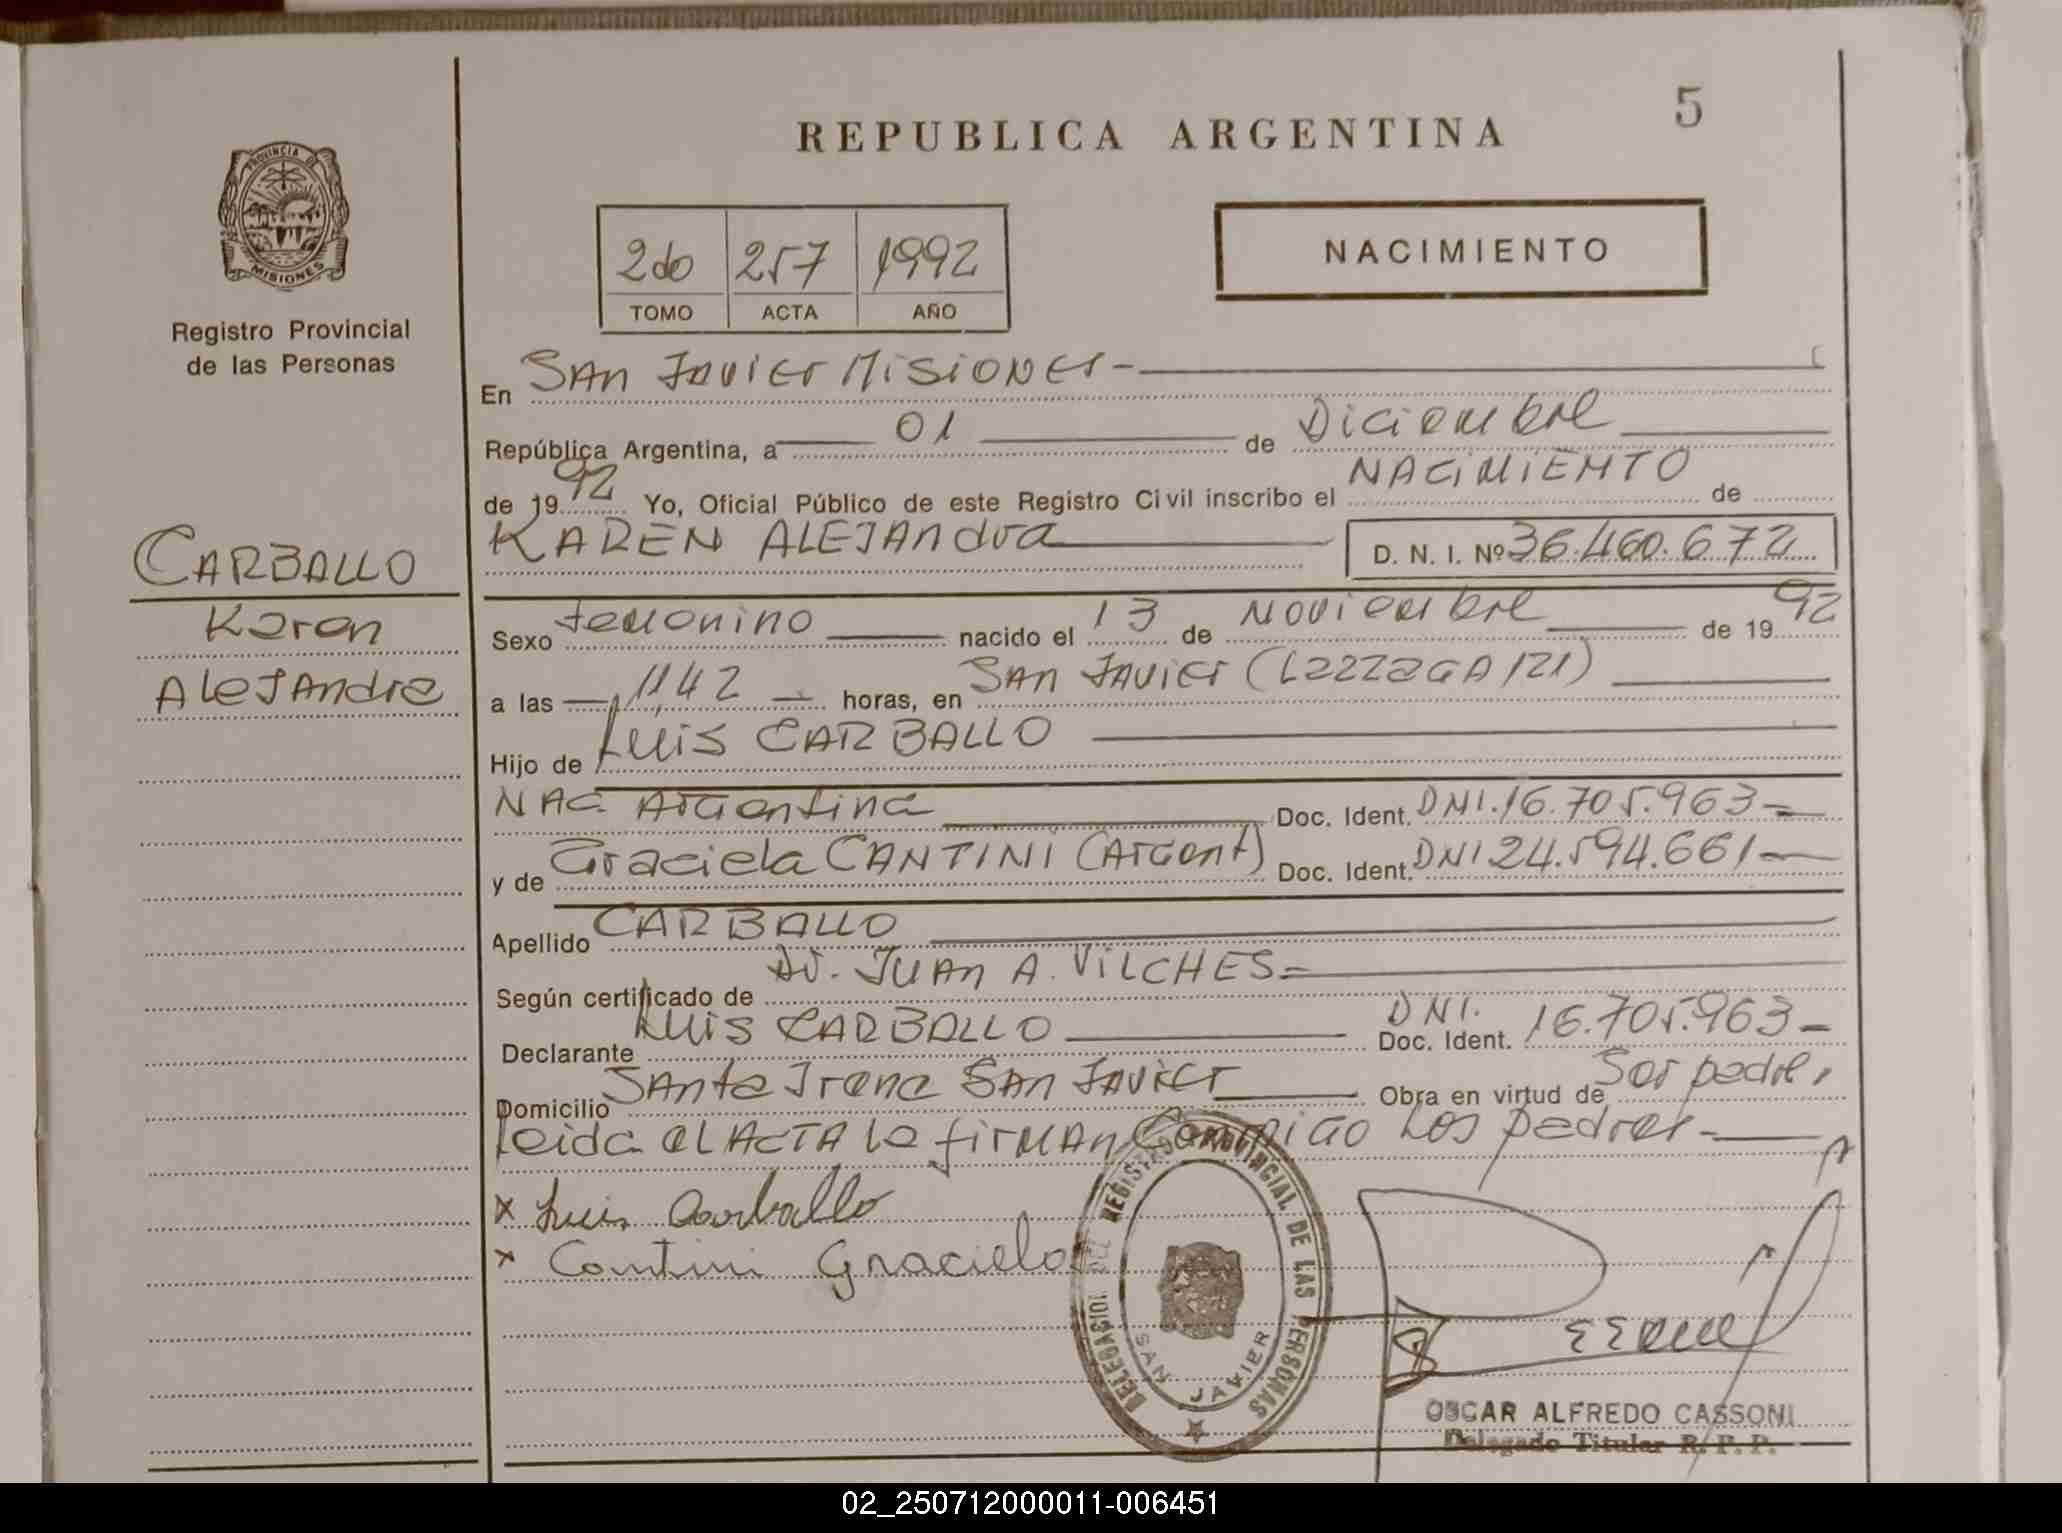 5
REPUBLICA ARGENTINA
PROVINCIA DE
MISIONES
Registro Provincial
de las Personas
2do 257 1992
TOMO ACTA AÑO
NACIMIENTO
En San Javier Misiones -
República Argentina, a 01 de Diciembre
de 1992 Yo, Oficial Público de este Registro Civil inscribo el NACIMIENTO de
KAREN ALEJAndra D. N. I. Nº 36.460.672
CARBALLO
Karen
Alejandra
Sexo femenino nacido el 13 de Noviembre de 1992
a las 11,42 horas, en San Javier (Lazzaga 121)
Hijo de Luis CARBALLO
Nac Argentina Doc. Ident. DNI. 16.705.963 =
y de Graciela CANTINI (Argent) Doc. Ident. DNI 24.594.661 -
Apellido CARBALLO
Según certificado de JUAN A. VILCHES =
Declarante Luis CARBALLO Doc. Ident. DNI. 16.705.963 -
Domicilio Santa Irene San Javier Obra en virtud de Ser padre,
leida el ACTA la firman Conmigo Los padres -
x Luis Carballo
x Cantini Graciela
DELEGACION DEL REGISTRO PROVINCIAL DE LAS PERSONAS
SAN JAVIER
OSCAR ALFREDO CASSONI
Delegado Titular R. P. P.
02_250712000011-006451